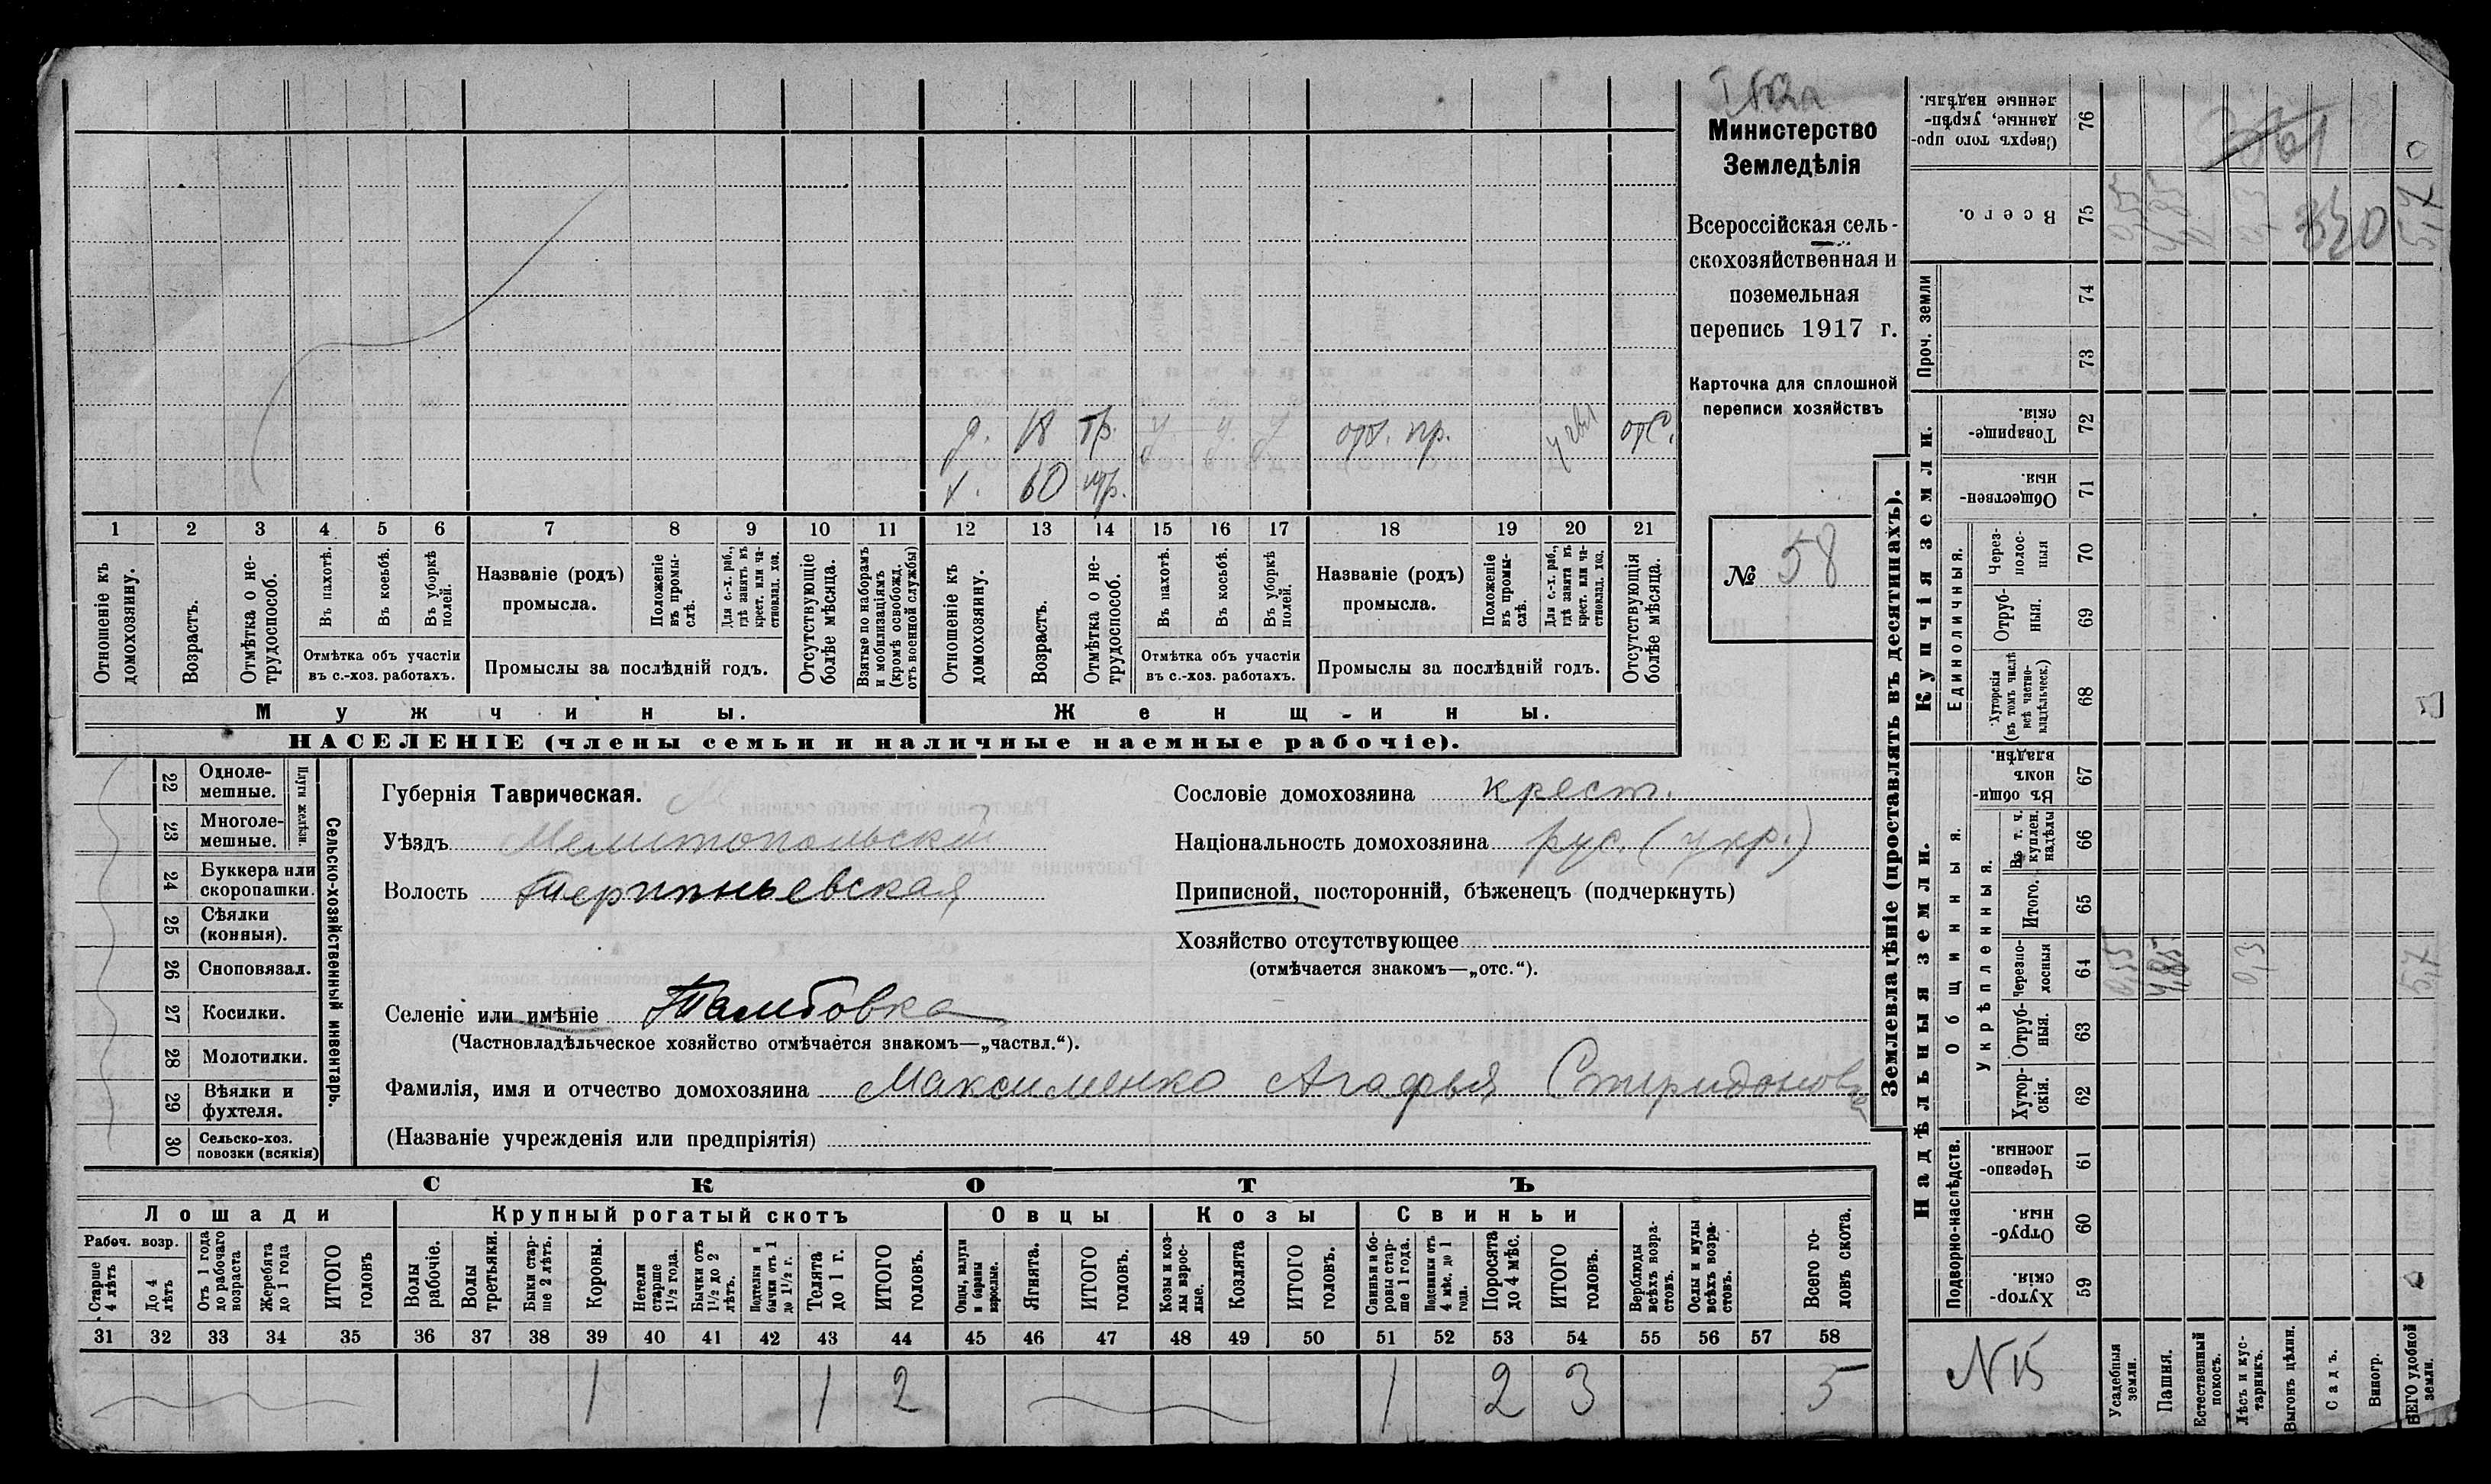 Министерство
Земледѣлія
Всероссійская сель-
скохозяйственная и
поземельная
перепись 1917 г.
Карточка для сплошной
переписи хозяйствъ
№ 58
д. 18 тр. у у у отс.
х. 60 тр.
1 2 3 4 5 6 7 8 9 10 11 12 13 14 15 16 17 18 19 20 21
Отношеніе къ домохозяину.
Возрастъ.
Отмѣтка о не-трудоспособ.
Въ пахотѣ.
Въ косьбѣ.
Въ уборкѣ полей.
Отмѣтка объ участіи
въ с.-хоз. работахъ.
Названіе (родъ)
промысла.
Положеніе въ промы-слѣ.
Для с.-х. раб., гдѣ занятъ въ крест. или ча-стновлад. хоз.
Промыслы за послѣдній годъ.
Отсутствующіе болѣе мѣсяца.
Взятые по наборамъ и мобилизаціямъ (кромѣ освобожд. отъ военной службы)
Отношеніе къ домохозяину.
Возрастъ.
Отмѣтка о не-трудоспособ.
Въ пахотѣ.
Въ косьбѣ.
Въ уборкѣ полей.
Отмѣтка объ участіи
въ с.-хоз. работахъ.
Названіе (родъ)
промысла.
Положеніе въ промы-слѣ.
Для с.-х. раб., гдѣ занята въ крест. или ча-стновлад. хоз.
Промыслы за послѣдній годъ.
Отсутствующія болѣе мѣсяца.
Мужчины.
Женщины.
НАСЕЛЕНІЕ (члены семьи и наличные наемные рабочіе).
Сельско-хозяйственный инвентарь.
Плуги желѣзн.
22 Одноле-мешные.
23 Многоле-мешные.
24 Буккера или скоропашки.
25 Сѣялки (конныя).
26 Сноповязал.
27 Косилки.
28 Молотилки.
29 Вѣялки и фухтеля.
30 Сельско-хоз. повозки (всякія)
Губернія Таврическая.
Уѣздъ Мелитопольскій
Волость Терпѣньевская
Селеніе или имѣніе Тамбовка
(Частновладѣльческое хозяйство отмѣчается знакомъ—„частвл.“).
Фамилія, имя и отчество домохозяина Максименко Агафья Спиридонов
(Названіе учрежденія или предпріятія)
Сословіе домохозяина крест.
Національность домохозяина рус. (укр.)
Приписной, посторонній, бѣженецъ (подчеркнуть)
Хозяйство отсутствующее
(отмѣчается знакомъ—„отс.“).
СКОТЪ
Лошади
Крупный рогатый скотъ
Овцы
Козы
Свиньи
Рабоч. возр.
Старше 4 лѣтъ
До 4 лѣтъ
Отъ 1 года до рабочаго возраста
Жеребята до 1 года
ИТОГО головъ
Волы рабочіе.
Волы третьяки.
Быки стар-ше 2 лѣтъ.
Коровы.
Нетели старше 1½ года.
Бычки отъ 1½ до 2 лѣтъ.
Подтелки и бычки отъ 1 до 1½ г.
Телята до 1 г.
ИТОГО головъ.
Овцы, валухи и бараны взрослые.
Ягнята.
ИТОГО головъ.
Козы и коз-лы взрос-лые.
Козлята
ИТОГО головъ.
Свиньи и бо-ровы стар-ше 1 года.
Подсвинки отъ 4 мѣс. до 1 года.
Поросята до 4 мѣс.
ИТОГО головъ.
Верблюды всѣхъ возра-стовъ.
Ослы и мулы всѣхъ возра-стовъ.
Всего го-ловъ скота.
31 32 33 34 35 36 37 38 39 40 41 42 43 44 45 46 47 48 49 50 51 52 53 54 55 56 57 58
1 1 2 1 2 3 5
Землевладѣніе (проставлять въ десятинахъ).
Купчія земли.
Надѣльныя земли.
76 Сверхъ того про-данные, укрѣп-ленные надѣлы.
75 Всего. 320
Проч. земли
74
73
72 Товарище-скія.
71 Обществен-ныя.
Единоличныя.
70 Через-полос-ныя
69 Отруб-ныя.
68 Хуторскія (въ томъ числѣ всѣ частно-владѣльческ.)
Общинныя.
67 Въ общин-номъ владѣн.
Укрѣпленныя.
66 Въ т. ч. куплен. надѣлы
65 Итого.
64 Черезпо-лосныя 0,55 4,85 0,3 5,7
63 Отруб-ныя.
62 Хутор-скія.
Подворно-наслѣдств.
61 Черезпо-лосныя.
60 Отруб-ныя.
59 Хутор-скія.
N 15
Усадебныя земли.
Пашня.
Естественный покосъ.
Лѣсъ и кус-тарникъ.
Выгонъ цѣлин.
Садъ.
Виногр.
ВСЕГО удобной земли.